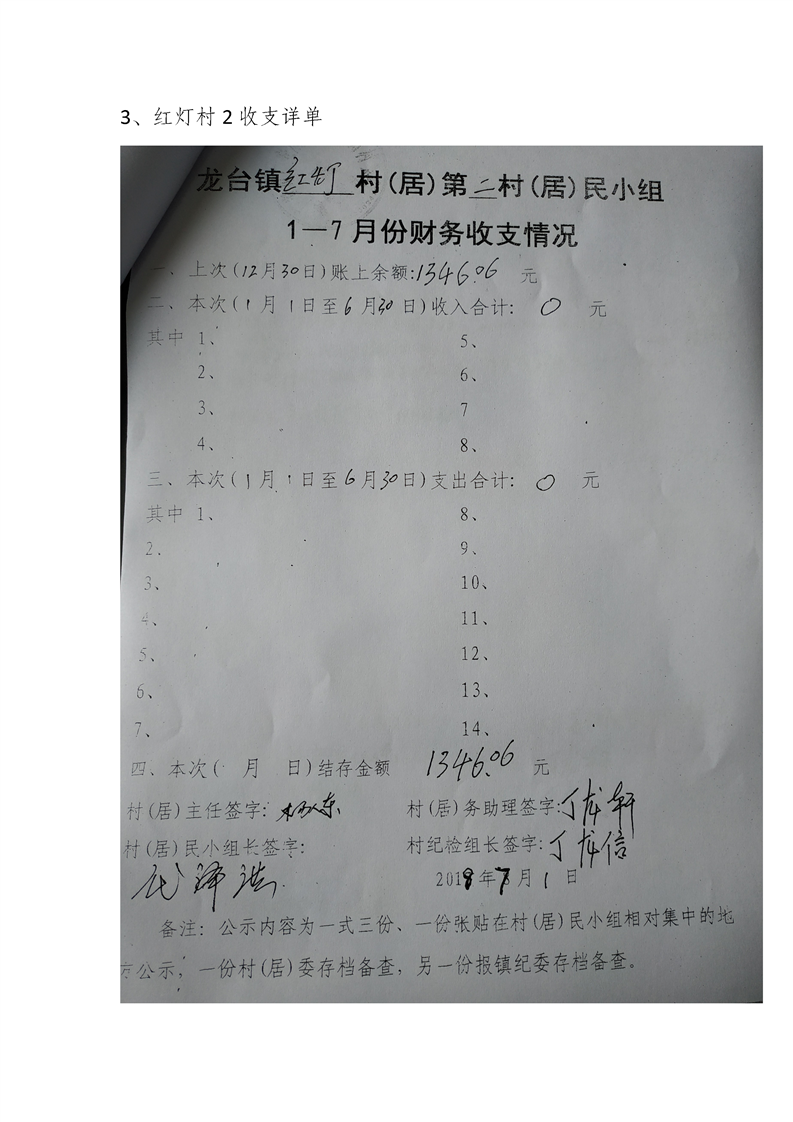 3、红灯村 2 收支详单
龙台镇红灯村(居)第二村(居)民小组
1—7月份财务收支情况
一、上次(12月30日)账上余额:1346.06 元
二、本次(1月1日至6月30日)收入合计: 0 元
其中 1、 5、
2、 6、
3、 7
4、 8、
三、本次(1月1日至6月30日)支出合计: 0 元
其中 1、 8、
2、 9、
3、 10、
4、 11、
5、 12、
6、 13、
7、 14、
四、本次( 月 日)结存金额 1346.06 元
村(居)主任签字: 村(居)务助理签字:丁龙轩
村(居)民小组长签字: 村纪检组长签字:丁龙信
2019年7月1日
备注: 公示内容为一式三份、一份张贴在村(居)民小组相对集中的地
方公示, 一份村(居)委存档备查, 另一份报镇纪委存档备查。